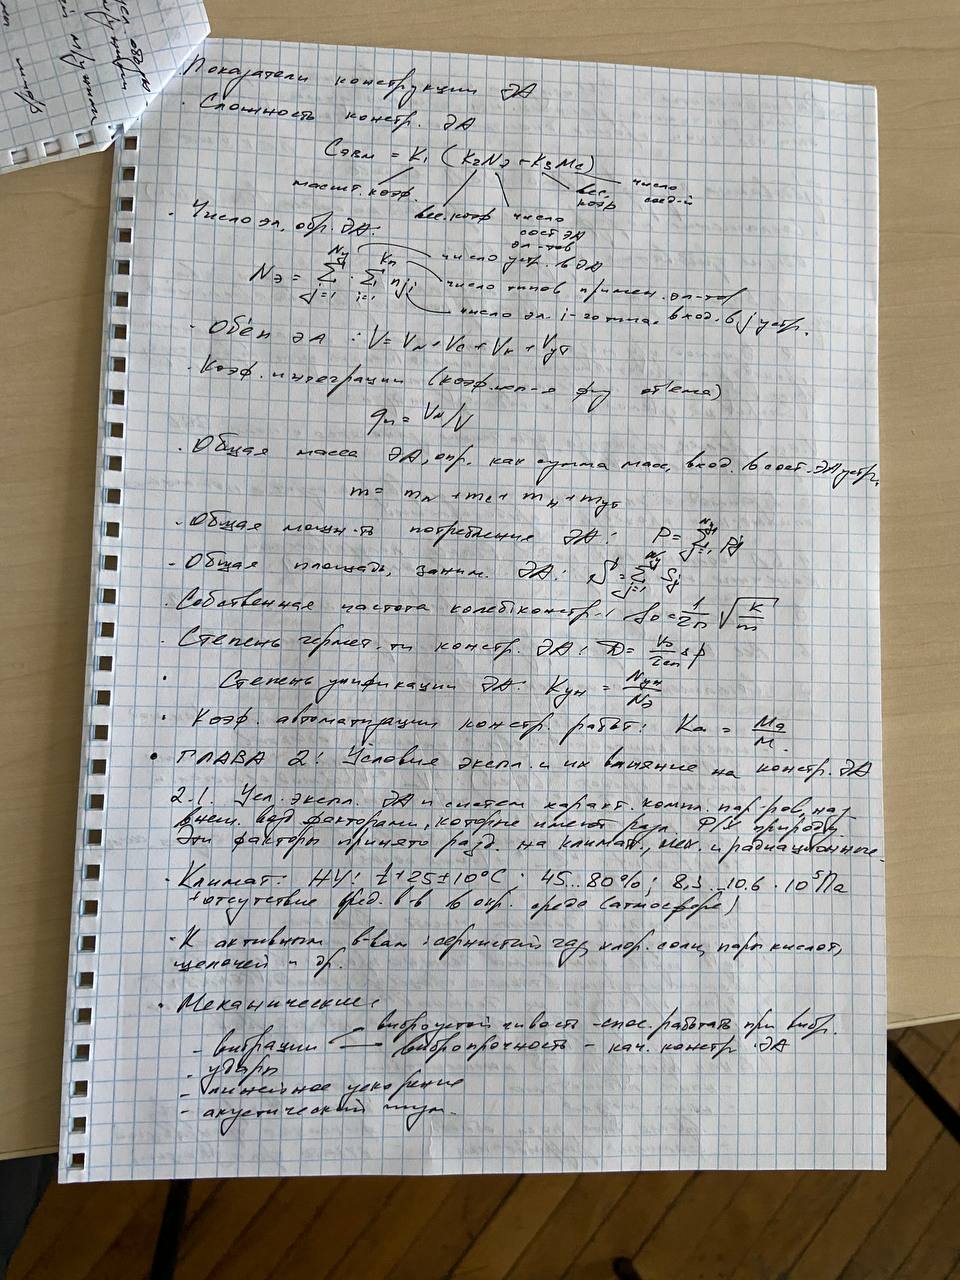 усл. образ.
м/у ними
м/у ними
Показатели конструкции ЭА
· Сложность констр. ЭА
Cэвм = K₁ (K₂Nэ + K₃Mс)
масшт. коэф.
вес. коэф
число сост ЭА эл-тов
вес. коэф
число соед-й
· Число эл, обр. ЭА:
Nэ = Σ(j=1…Nу) · Σ(i=1…Kп) nji
число устр. в ЭА
число типов примен. эл-тов
число эл. i-го типа, вход. в j устр.
· Объём ЭА : V = VN + Vс + Vн + Vут
· Коэф. интеграции (коэф. исп-я физ объема)
qп = VN/V
· Общая масса ЭА, опр. как сумма масс, вход. в сост. ЭА устр.
m = mN + mс + mн + mут
· Общая мощн-ть потребления ЭА: P = Σ(j=1…Nу) Pj
- Общая площадь, заним. ЭА: S = Σ(j=1…Nу) Sj
· Собственная частота колеб. констр.: f₀ = 1/2π √(k/m)
· Степень гермет-ти констр. ЭА: D =
· Степень унификации ЭА: Kун = Nун/Nэ
· Коэф. автоматизации констр. работ: Kа = Mа/M.
• ГЛАВА 2: Условия экспл. и их влияние на констр. ЭА
2.1. Усл. экспл. ЭА и систем характ. компл. пар-ров, наз
внеш. возд факторами, которые имеют разл. Ф/Х природу.
Эти факторы принято разд. на климат., мех. и радиационные.
· Климат: НУ: t +25±10°C · 45..80%; 8,3..10.6 · 10⁵Па
+ отсутствие вред. в-в в окр. среде (атмосфере)
· К активным в-вам: сернистый газ, хлор. солиц, пары кислот,
щелочей и др.
· Механические:
- вибрации
виброустойчивость - спос. работать при вибр.
вибропрочность - кач. констр. ЭА
- удары
- линейное ускорение
- акустический шум.